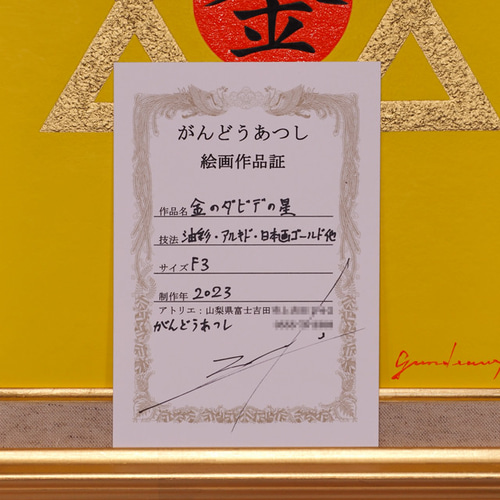 金
がんどうあつし
絵画作品証
作品名 金のダビデの星
技法 油彩・アルキド・日本画ゴールド他
サイズ F3
制作年 2023
アトリエ：山梨県富士吉田
がんどうあつし